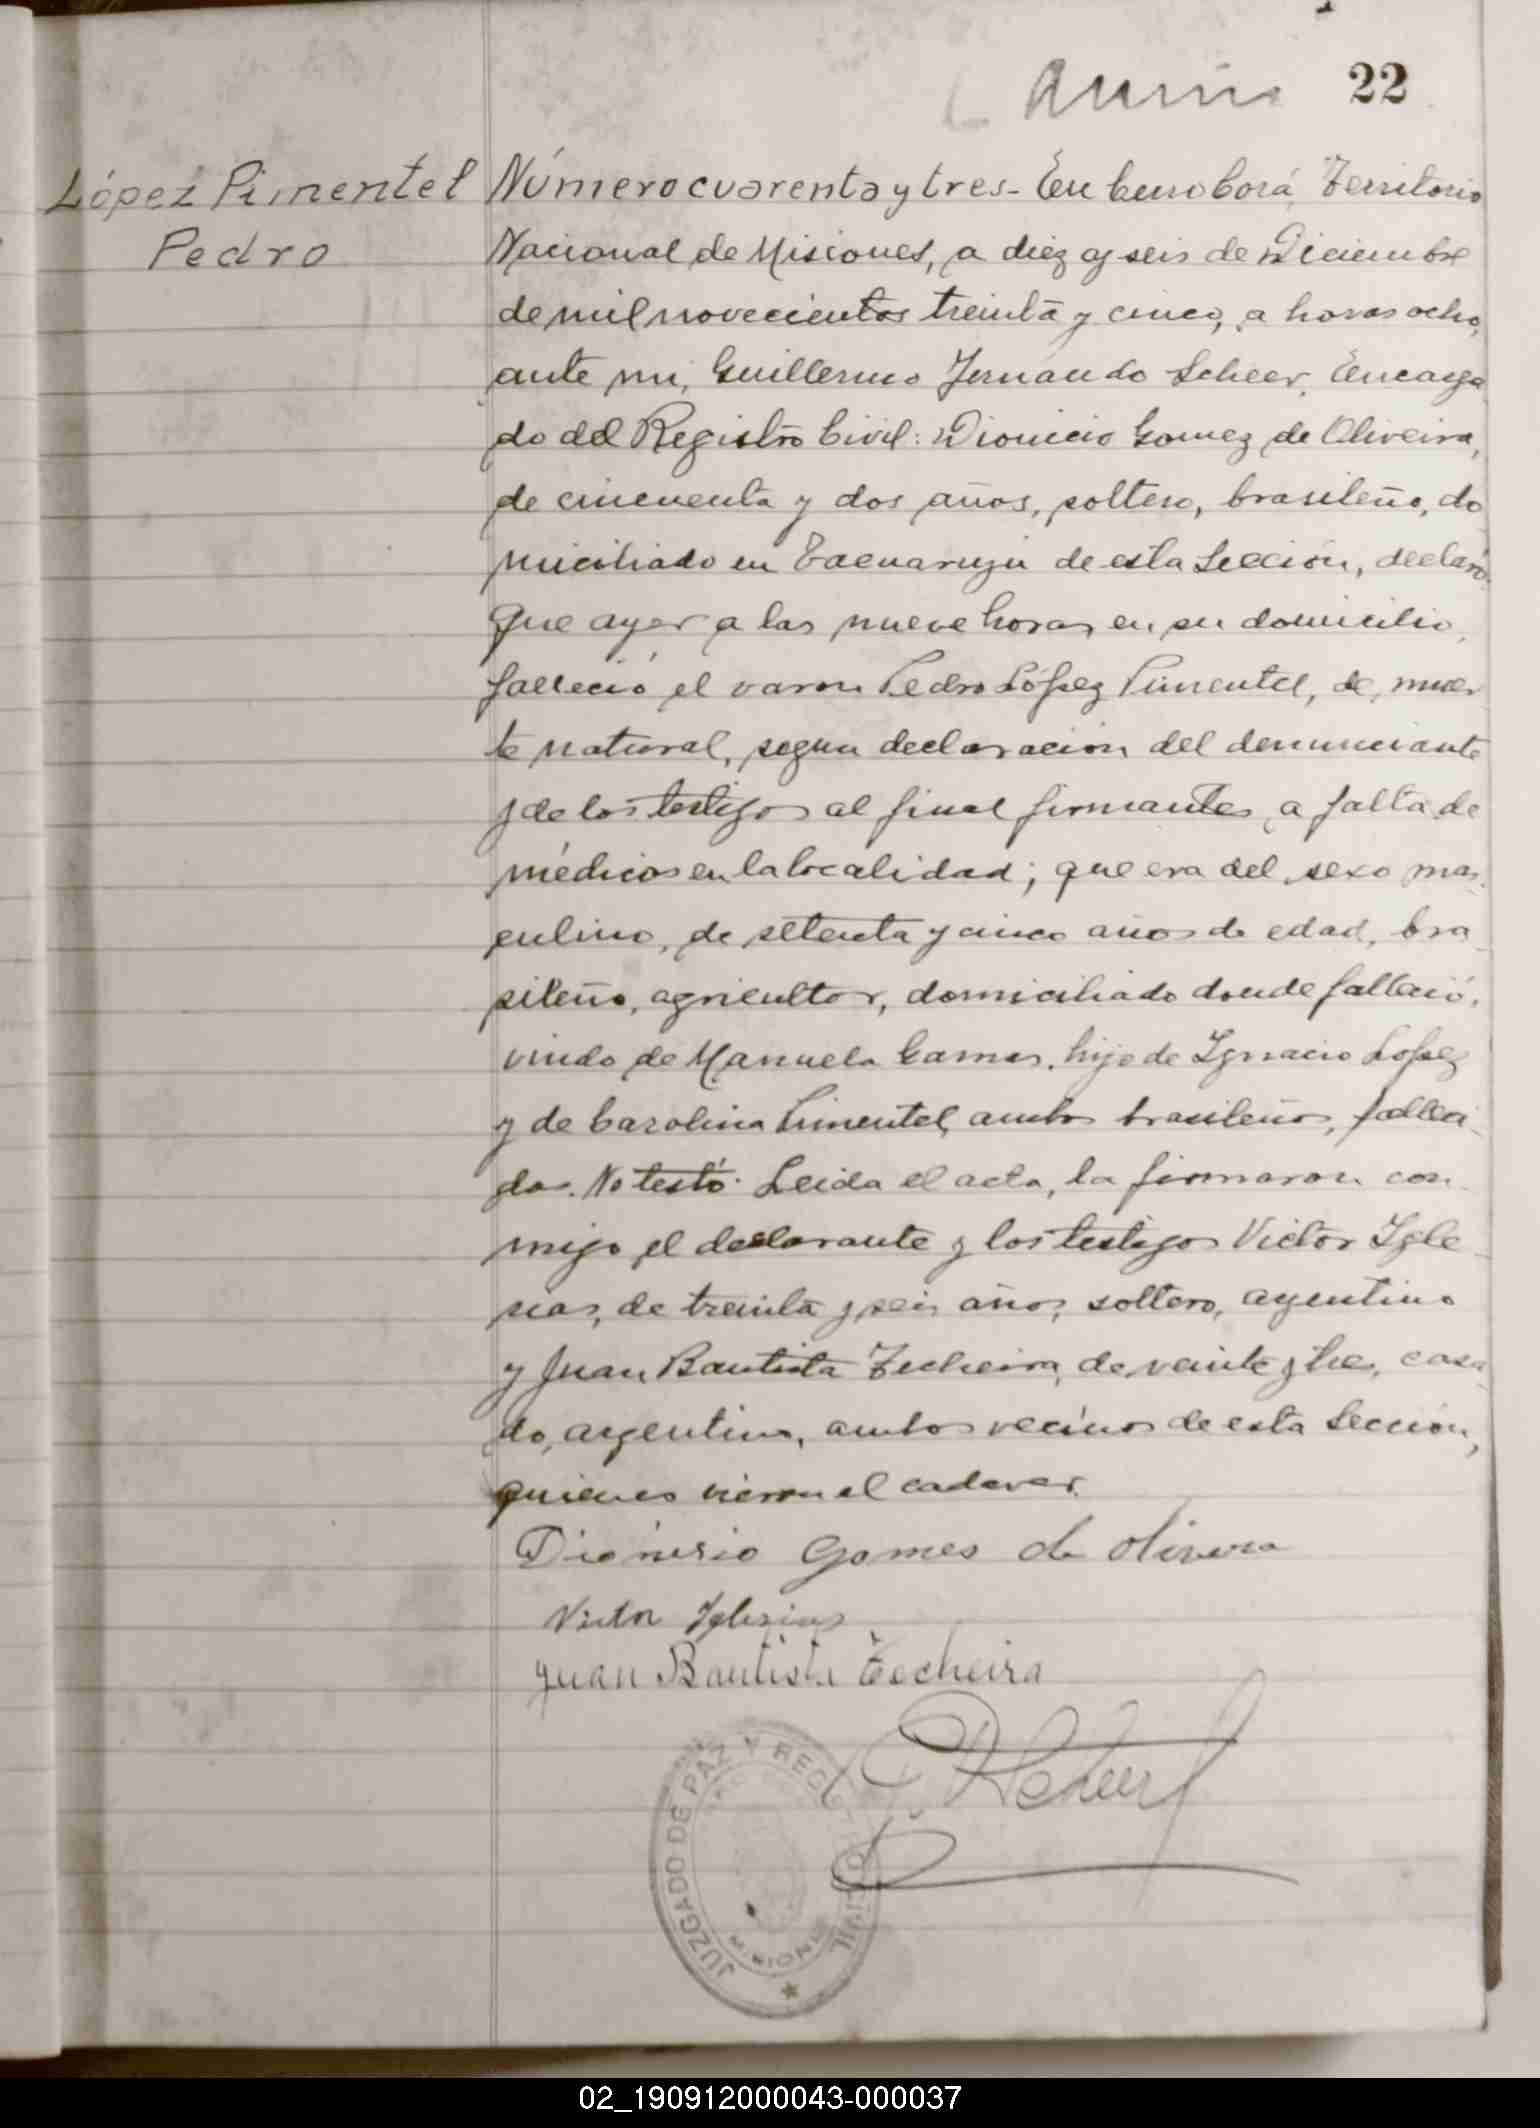 22
López Pimentel
Pedro
Número cuarenta y tres - En Cerro Corá, Territorio
Nacional de Misiones, a diez y seis de Diciembre
de mil novecientos treinta y cinco, a horas ocho,
ante mi, Guillermo Fernando Scheer, Encarga
do del Registro Civil: Dionicio Gomez de Oliveira,
de cincuenta y dos años, soltero, brasileño, do
miciliado en de esta Sección, declaró:
Que ayer a las nueve horas en su domicilio,
falleció el varon Pedro López Pimentel, de muer
te natural, segun declaracion del denunciante
y de los testigos al final firmantes, a falta de
médicos en la localidad; que era del sexo mas
culino, de setenta y cinco años de edad, bra
sileño, agricultor, domiciliado donde falleció,
viudo de Manuela hijo de Ignacio López
y de Carolina Pimentel, ambos brasileños, falleci
dos. No testó. Leida el acta, la firmaron con
migo el declarante y los testigos Victor Igle
sias, de treinta y seis años, soltero, argentino
y Juan Bautista Techeira, de veinte y tres, casa
do, argentino, ambos vecinos de esta Sección,
quienes vieron el cadaver.
Dionisio Gomes de Olivera
Victor Iglesias
Juan Bautista Techeira
JUZGADO DE PAZ Y REGISTRO CIVIL
MISIONES
02_190912000043-000037